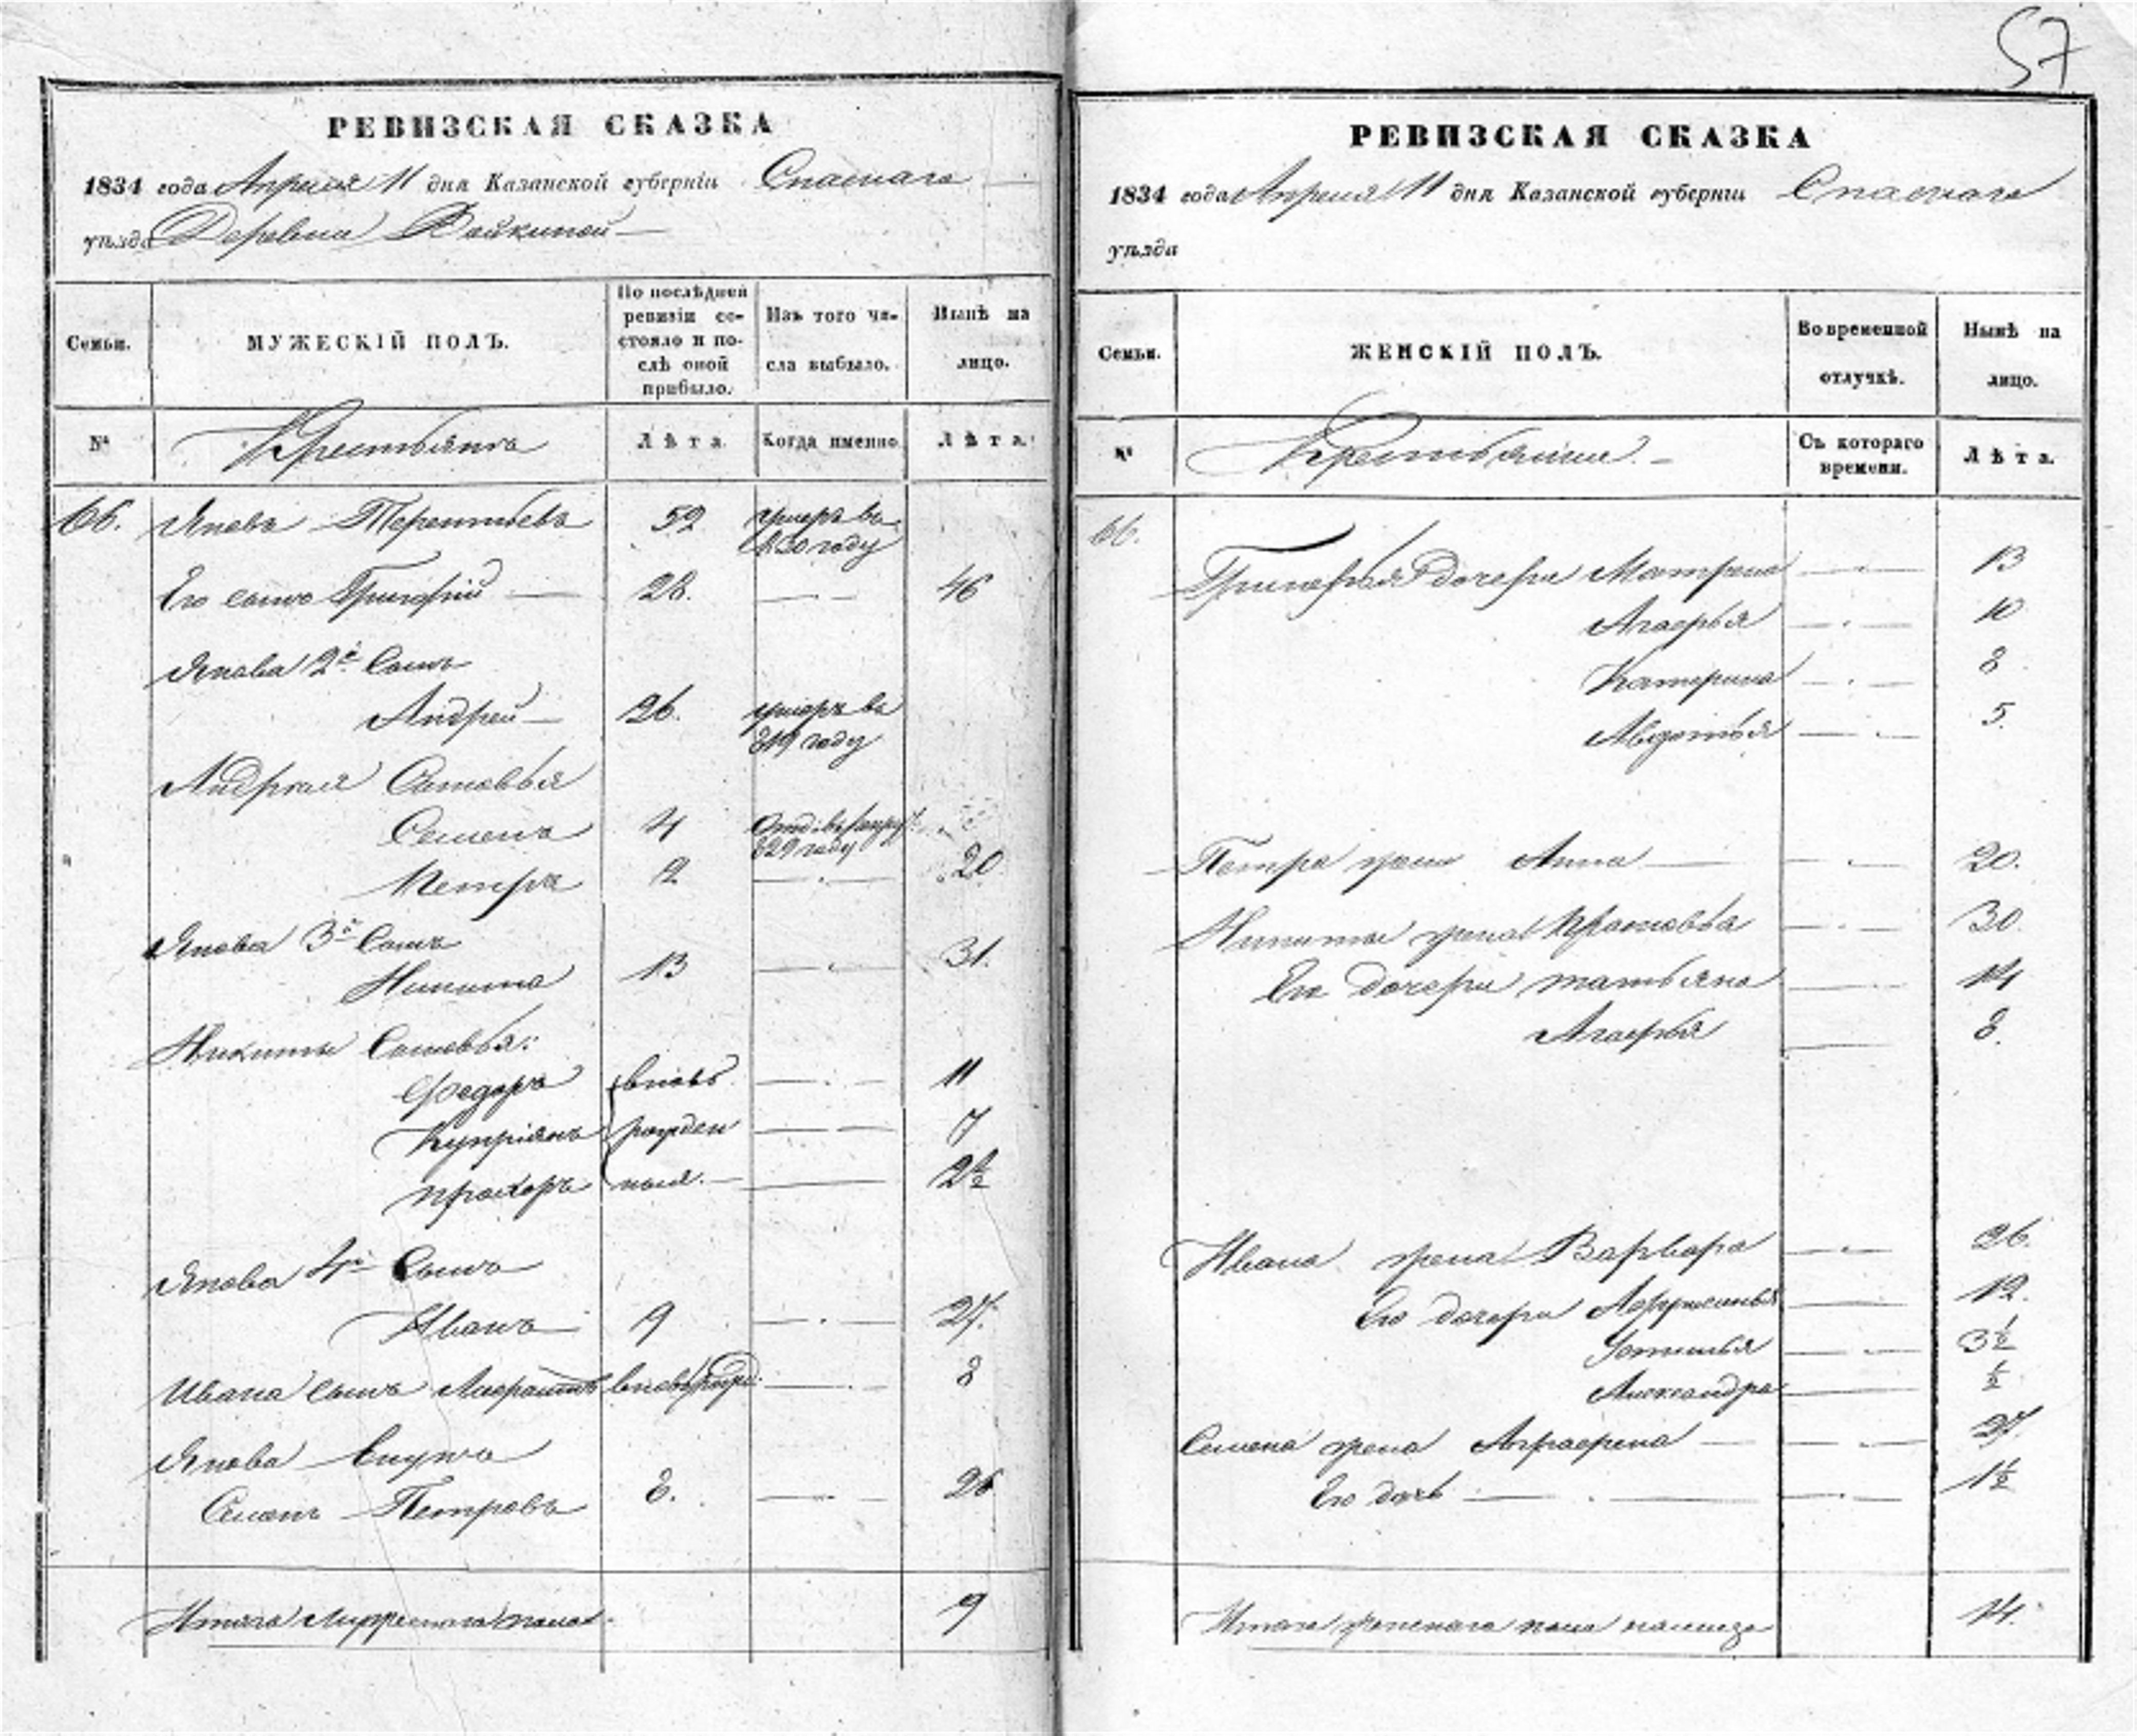 57
РЕВИЗСКАЯ СКАЗКА
1834 года Апреля 11 дня Казанской губерніи Спаскаго
уѣзда Деревни Войкиной
Семьи.
МУЖЕСКІЙ ПОЛЪ.
По послѣдней ревизіи состояло и послѣ оной прибыло.
Изъ того числа выбыло.
Нынѣ на лицо.
№
Крестьянъ
Лѣта.
Когда именно.
Лѣта.
66. Яковъ Терентьевъ 52 умеръ въ
830 году
Его сынъ Григорій 28. 46
Якова 2й Сынъ
Андрей 26. умеръ въ
819 году
Андрея Сыновья
Семенъ 4 Отд: въ рекру
829 году
Петръ 2 20
Якова 3й Сынъ
Никита 13 31.
Никиты Сыновья:
Федоръ вновь 11
Купріянъ рожден 7
Прохоръ ныя. 2½
Якова 4й Сынъ
Иванъ 9 27.
Ивана сынъ вновь рожд: 8
Якова Внукъ
Семенъ Петровъ 8. 26
Итого Мужеска пола 9
РЕВИЗСКАЯ СКАЗКА
1834 года Апреля 11 дня Казанской губерніи Спаскаго
уѣзда
Семьи.
ЖЕНСКІЙ ПОЛЪ.
Во временной отлучкѣ.
Нынѣ на лицо.
№
Крестьянки.
Съ котораго времени.
Лѣта.
66.
Григорья дочери Матрена 13
Агафья 10
Катерина 8
Авдотья 5.
Петра жена Анна 20.
Никиты жена Прасковья 30.
Его дочери Татьяна 14
Агафья 8.
Ивана жена Варвара 26.
Его дочери 12.
Устинья 3½
Александра ½
Семена жена Аграфена 27.
Его дочь 1½
Итого женскаго пола налицо 14.